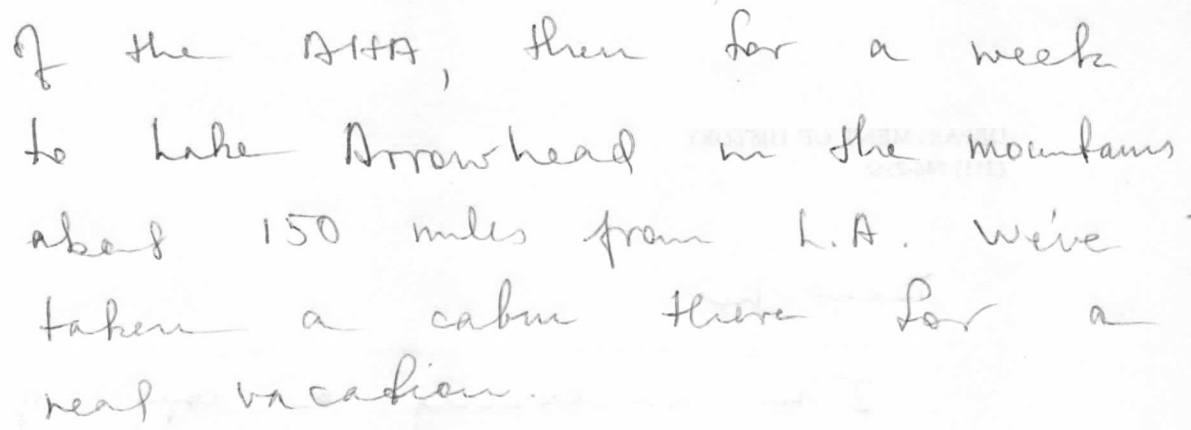 of the AHA, then for a week
to Lake Arrowhead in the mountains
about 150 miles from L.A. We've
taken a cabin there for a
real vacation.